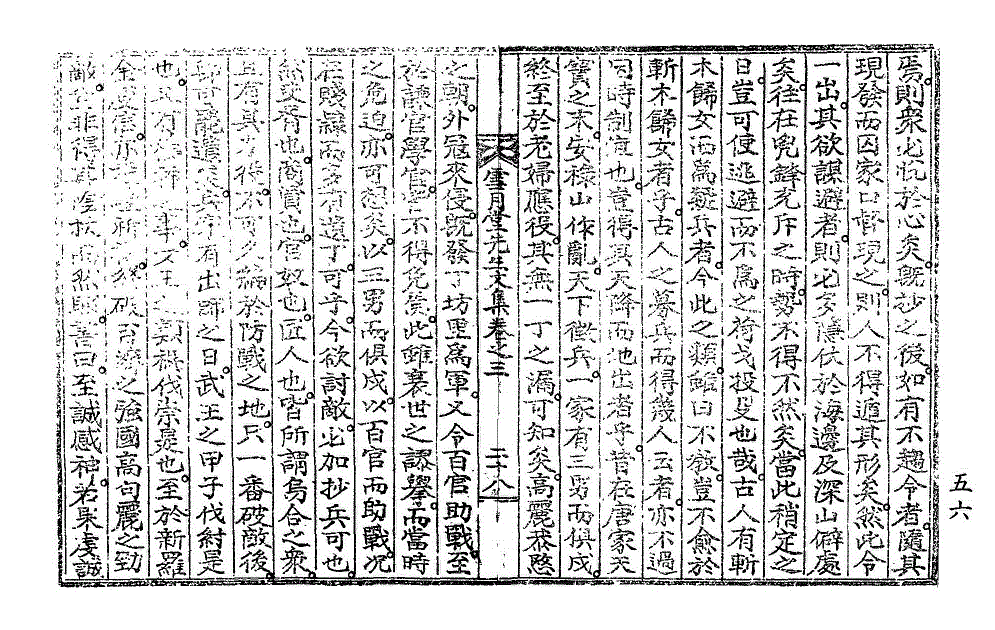 焉則衆心忱於心矣旣抄之後如有不趨令者隨其
現發而囚家口督現之則人不得遁其形矣然此令
一出其欲謀避者則必多隱伏於海邊及深山僻處
矣往在兇鋒充斥之時勢不得不然矣當此稍定之
日豈可便逃避而不爲之荷戈投殳也哉古人有斬
木歸女而爲兵者今此之類雖曰不敎豈不愈於
斬木歸女者乎古人之募兵而得幾人云者亦不過
因時制宜也豈得其天降而地出者乎昔在唐家天
寶之末安祿山作亂天下徵兵一家有三男而俱戍
終至於老婦應役其無一丁之漏可知矣高麗恭愍
雪月堂先生文集卷之三 二十八
之朝外冦來侵旣發丁坊里爲軍又令百官助戰至
於諫官學官不得免焉此雖衰世之謬擧而當時
之危迫亦可想矣以三男而俱戍以百官而助戰况
在賤隷而多有遺丁可乎今欲討敵必加抄兵可也
然吏胥也商賈也官奴也匠人也皆所謂烏合之衆
且有其才得不可久編於防戰之地只一番破敵後
卽可罷遣矣兵有出師之日武王之甲子伐紂是
也有之事文王之類禡伐崇是也至於新羅
金庾信亦破百濟之強國高句麗之勁
敵非得其然與書曰至誠感神若果虔誠
五六